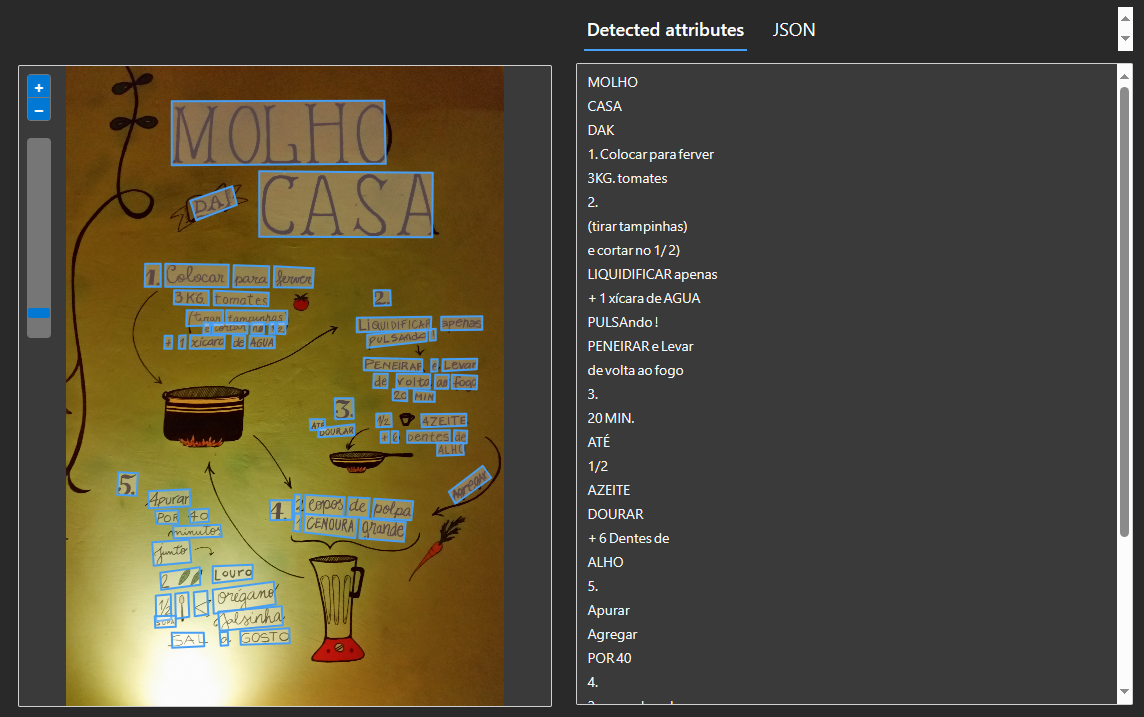 Detected attributes
JSON
+
−
MOLHO
DA
CASA
1. Colocar para ferver
3KG. tomates
(tirar tampinhas
e cortar no 1/2)
+ 1 xícara de AGUA
2.
LIQUIDIFICAR apenas
PULSAndo!
PENEIRAR e Levar
de volta ao fogo
20 MIN
3.
ATÉ
DOURAR
1/2 AZEITE
+ 6 Dentes de
ALHO
Agregar
4. 2 copos de polpa
1 CENOURA grande
5.
Apurar
POR 40
minutos
Junto
2 LOURO
1/2 Orégano
SOPA Salsinha
SAL a GOSTO
MOLHO
CASA
DAK
1. Colocar para ferver
3KG. tomates
2.
(tirar tampinhas)
e cortar no 1/ 2)
LIQUIDIFICAR apenas
+ 1 xícara de AGUA
PULSAndo !
PENEIRAR e Levar
de volta ao fogo
3.
20 MIN.
ATÉ
1/2
AZEITE
DOURAR
+ 6 Dentes de
ALHO
5.
Apurar
Agregar
POR 40
4.